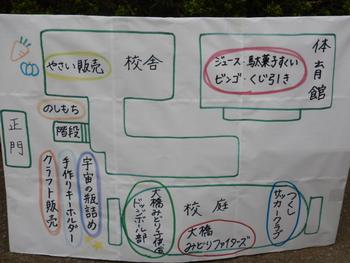 やさい販売
校舎
ジュース・駄菓子すくい
ビンゴ・くじ引き
体育館
のしもち
階段
正門
クラフト販売
手作りキーホルダー
宇宙の瓶詰め
大橋みどり少年団
ドッジボール部
校庭
大橋
みどりファイターズ
つくし
サッカークラブ